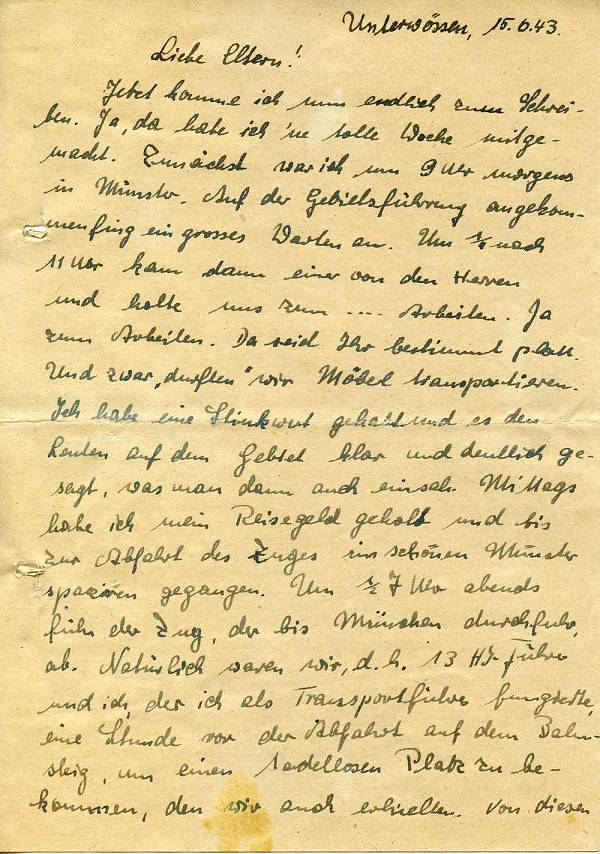 Unterwössen, 15.6.43.
Liebe Eltern!
Jetzt komme ich nun endlich zum Schrei-
ben. Ja, da habe ich 'ne tolle Woche mitge-
macht. Zunächst war ich um 9 Uhr morgens
in Münster. Auf der Gebietsführung angekom-
men fing ein grosses Warten an. Um ¼ nach
11 Uhr kam dann einer von den Herren
und holte uns zum .... Arbeiten. Ja
zum Arbeiten. Da seid Ihr bestimmt platt.
Und zwar „durften" wir Möbel transportieren.
Ich habe eine Stinkwut gehabt und es den
Leuten auf dem Gebiet klar und deutlich ge-
sagt, was man dann auch einsah. Mittags
habe ich mein Reisegeld geholt und bis
zur Abfahrt des Zuges im schönen Münster
spazieren gegangen. Um ½ 7 Uhr abends
fuhr der Zug, der bis München durchfuhr,
ab. Natürlich waren wir, d.h. 13 HJ-Führer
und ich, der ich als Transportführer fungierte,
eine Stunde vor der Abfahrt auf dem Bahn-
steig, um einen tadellosen Platz zu be-
kommen, den wir auch erhielten. Von diesen